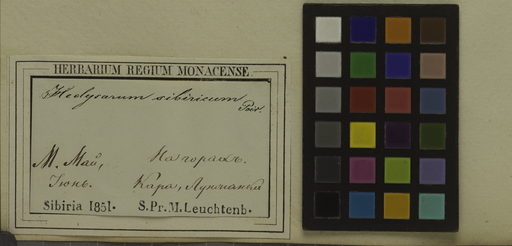 HERBARIUM REGIUM MONACENSE
Hedysarum sibiricum
Poir.
М. Май, На горахъ.
Іюнь. Кара,
Sibiria 1851. S.Pr.M.Leuchtenb.